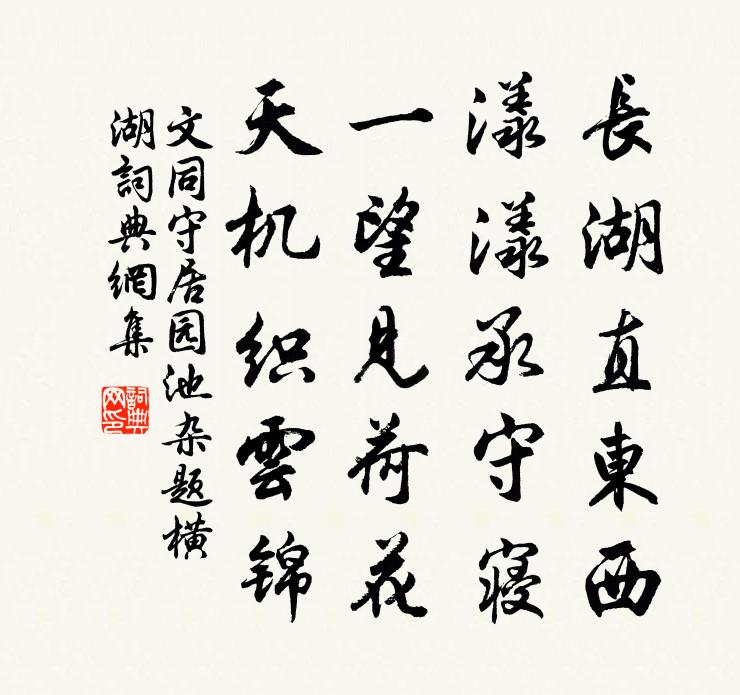 長湖直東西
漾漾承守寝
一望見荷花
天机织雲锦
文同守居园池杂题横
湖詞典網集
詞典网印